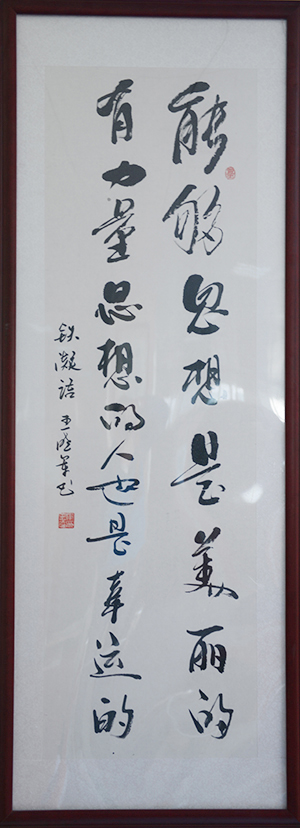 能够思想是美丽的
有力量思想的人也是幸运的
铁凝语 王晓军书